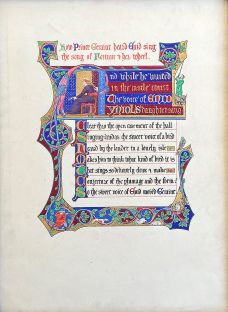 How Prince Geraint heard Enid sing
the song of Fortune & her wheel.
And while he waited
in the castle court
The voice of ENID
YNIOLS daughter sang
Clear thro the open casement of the hall
Singing and as the sweet voice of a bird
Heard by the lander in a lonely isle
Makes him to think what kind of bird it is
That sings so delicately clear & make
Conjecture of the plumage and the form
So the sweet voice of Enid moved Geraint